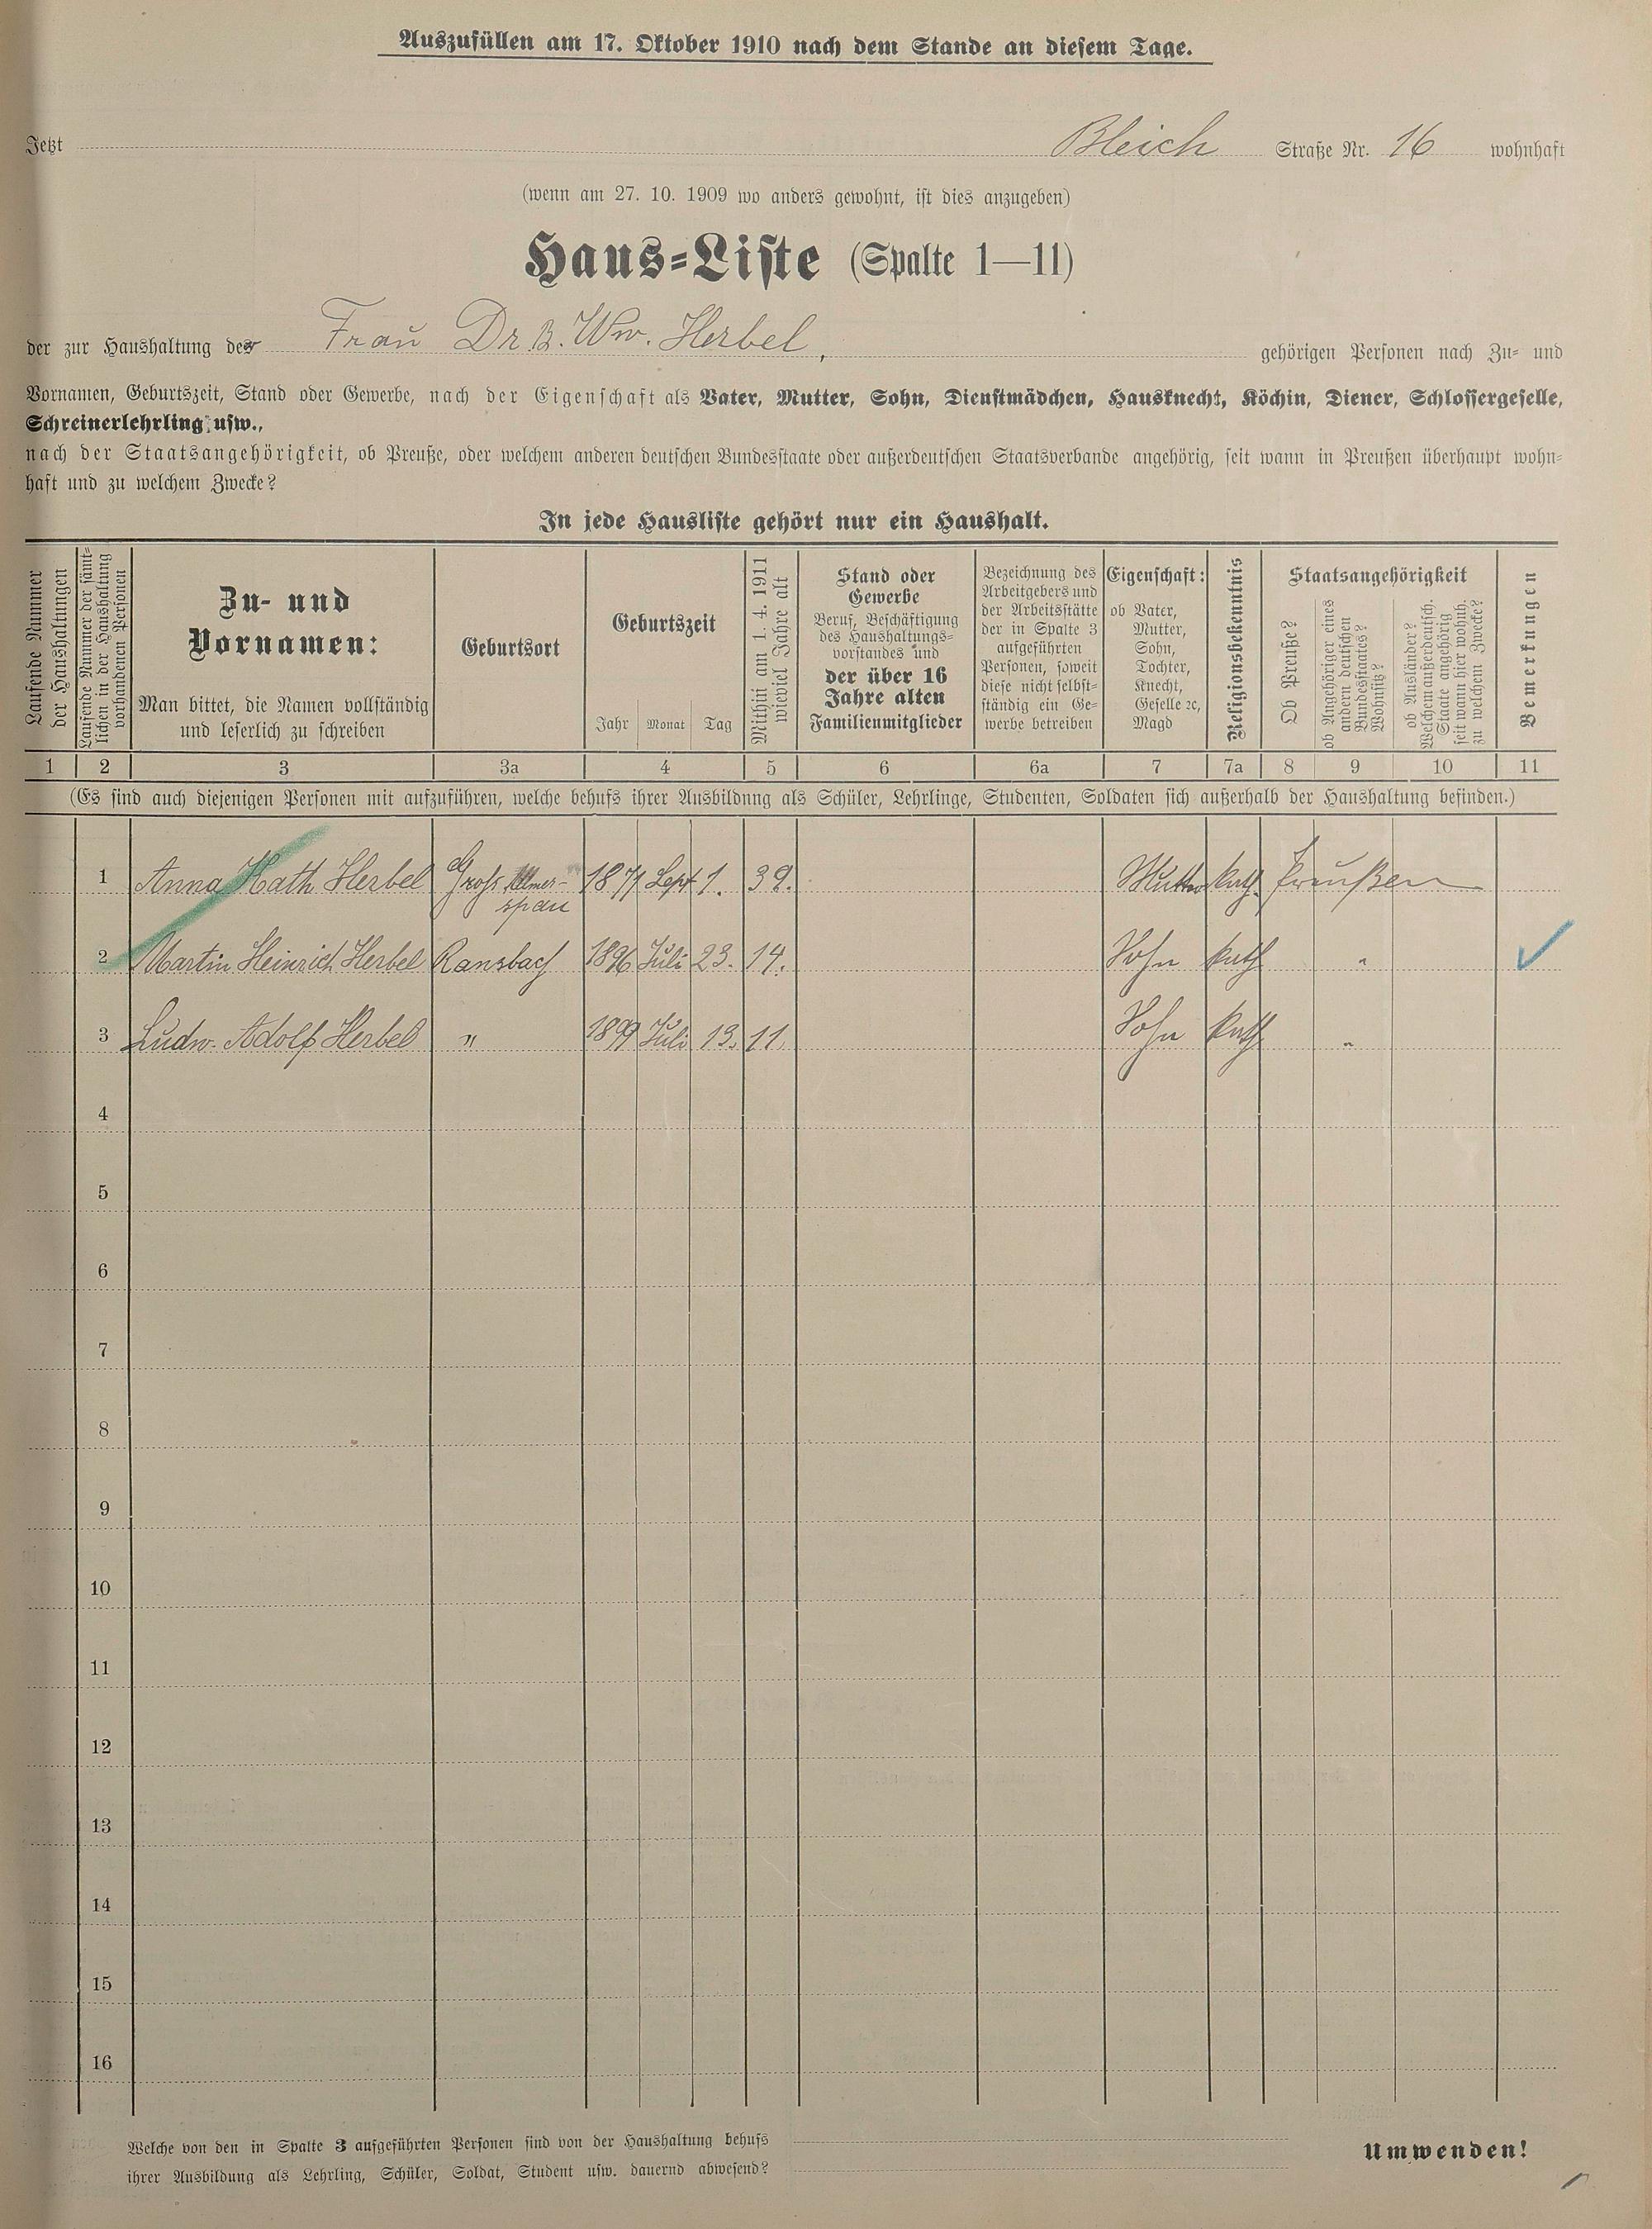 Auszufüllen am 17. Oktober 1910 nach dem Stande an diesem Tage.
Jetzt Bleich Straße Nr. 16 wohnhaft
(wenn am 27. 10. 1909 wo anders gewohnt, ist dies anzugeben)
Haus-Liste (Spalte 1—11)
der zur Haushaltung der Frau Dr. Ww. Herbel, gehörigen Personen nach Zu- und
Vornamen, Geburtszeit, Stand oder Gewerbe, nach der Eigenschaft als Vater, Mutter, Sohn, Dienstmädchen, Hausknecht, Köchin, Diener, Schlossergeselle,
Schreinerlehrling usw.,
nach der Staatsangehörigkeit, ob Preuße, oder welchem anderen deutschen Bundesstaate oder außerdeutschen Staatsverbande angehörig, seit wann in Preußen überhaupt wohn-
haft und zu welchem Zwecke?
In jede Hausliste gehört nur ein Haushalt.
Laufende Nummer
der Haushaltungen
Laufende Nummer der sämt-
lichen in der Haushaltung
vorhandenen Personen
Zu- und
Vornamen:
Man bittet, die Namen vollständig
und leserlich zu schreiben
Geburtsort
Geburtszeit
Jahr Monat Tag
Mithin am 1. 4. 1911
wieviel Jahre alt
Stand oder
Gewerbe
Beruf, Beschäftigung
des Haushaltungs-
vorstandes und
der über 16
Jahre alten
Familienmitglieder
Bezeichnung des
Arbeitgebers und
der Arbeitsstätte
der in Spalte 3
aufgeführten
Personen, soweit
diese nicht selbst-
ständig ein Ge-
werbe betreiben
Eigenschaft:
ob Vater,
Mutter,
Sohn,
Tochter,
Knecht,
Geselle ꝛc,
Magd
Religionsbekenntnis
Staatsangehörigkeit
Ob Preuße?
ob Angehöriger eines
andern deutschen
Bundesstaates?
Wohnsitz?
ob Ausländer?
Welchem außerdeutsch.
Staate angehörig
seit wann hier wohnh.
zu welchem Zwecke?
Bemerkungen
1 2 3 3a 4 5 6 6a 7 7a 8 9 10 11
(Es sind auch diejenigen Personen mit aufzuführen, welche behufs ihrer Ausbildung als Schüler, Lehrlinge, Studenten, Soldaten sich außerhalb der Haushaltung befinden.)
1 Anna Kath Herbel Gross 1871 Sept 1. 39. Mutter kath. Preußen
2 Martin Heinrich Herbel Ransbach 1896 Juli 23. 14. Sohn kath "
3 Ludw. Adolf Herbel " 1899 Juli 13. 11. Sohn kath "
4
5
6
7
8
9
10
11
12
13
14
15
16
Welche von den in Spalte 3 aufgeführten Personen sind von der Haushaltung behufs
ihrer Ausbildung als Lehrling, Schüler, Soldat, Student usw. dauernd abwesend?
Umwenden!